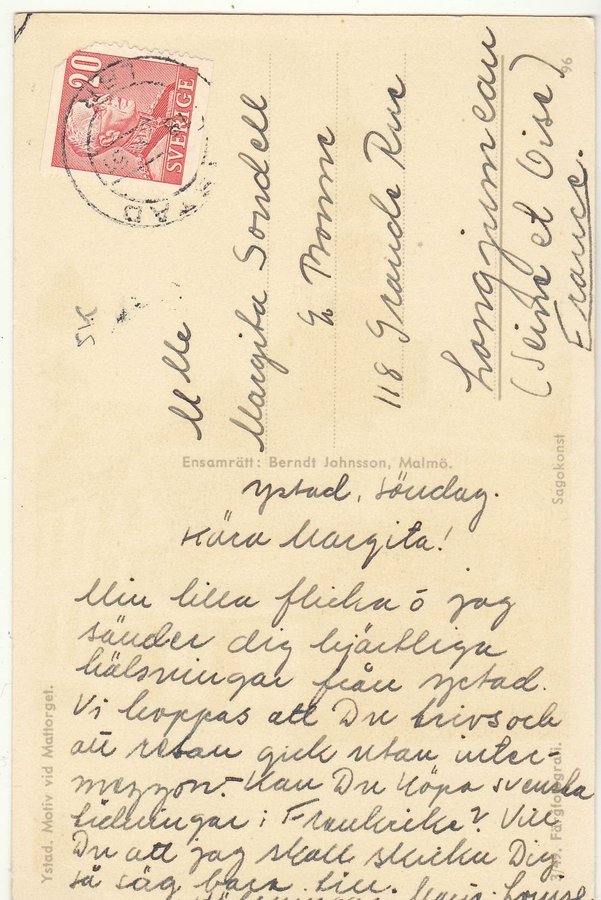 20
SVERIGE
YSTAD
SK
Mlle
Margita Sondell
118 Grande Rue
Longjumeau
(Seine et Oise)
France.
96
Ensamrätt: Berndt Johnsson, Malmö.
Sagokonst
Ystad. Motiv vid Mattorget.
Färgfotografi.
Ystad, Söndag.
Kära Margita!
Min lilla flicka o jag
sänder dig hjärtliga
hälsningar från Ystad.
Vi hoppas att Du trivs och
att resan gick utan inter-
mezzon. Kan Du köpa svenska
tidningar i Frankrike? Vill
Du att jag skall skicka Dig
så säg bara till.
Hälsningar Maj-Louise